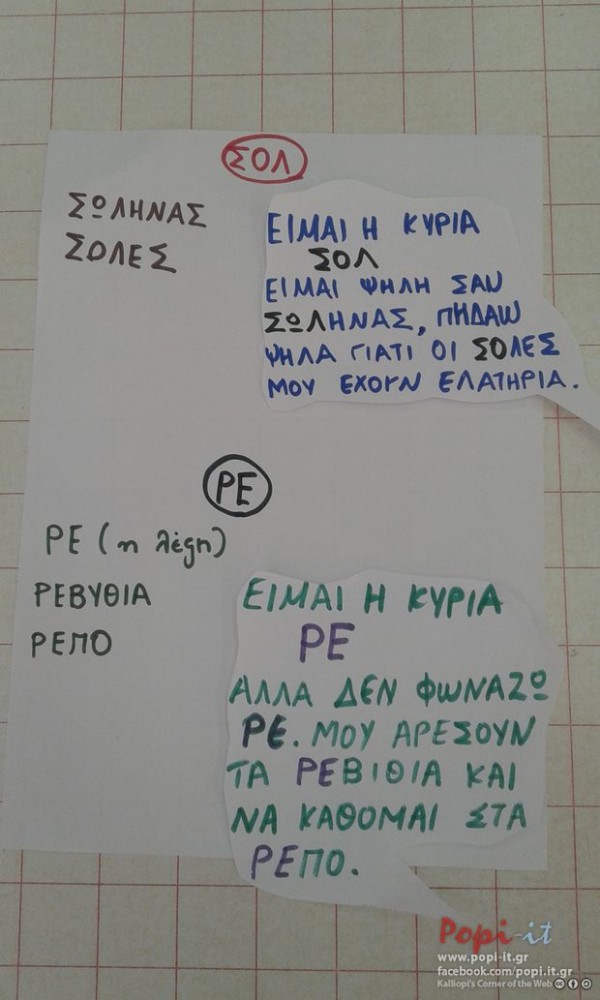 ΣΟΛ
ΣΩΛΗΝΑΣ
ΣΟΛΕΣ
ΕΙΜΑΙ Η ΚΥΡΙΑ
ΣΟΛ
ΕΙΜΑΙ ΨΗΛΗ ΣΑΝ
ΣΩΛΗΝΑΣ, ΠΗΔΑΩ
ΨΗΛΑ ΓΙΑΤΙ ΟΙ ΣΟΛΕΣ
ΜΟΥ ΕΧΟΥΝ ΕΛΑΤΗΡΙΑ.
ΡΕ
ΡΕ (η λέξη)
ΡΕΒΥΘΙΑ
ΡΕΠΟ
ΕΙΜΑΙ Η ΚΥΡΙΑ
ΡΕ
ΑΛΛΑ ΔΕΝ ΦΩΝΑΖΩ
ΡΕ. ΜΟΥ ΑΡΕΣΟΥΝ
ΤΑ ΡΕΒΙΘΙΑ ΚΑΙ
ΝΑ ΚΑΘΟΜΑΙ ΣΤΑ
ΡΕΠΟ.
Popi-it
www.popi-it.gr
facebook.com/popi.it.gr
Kalliopi's Corner of the Web